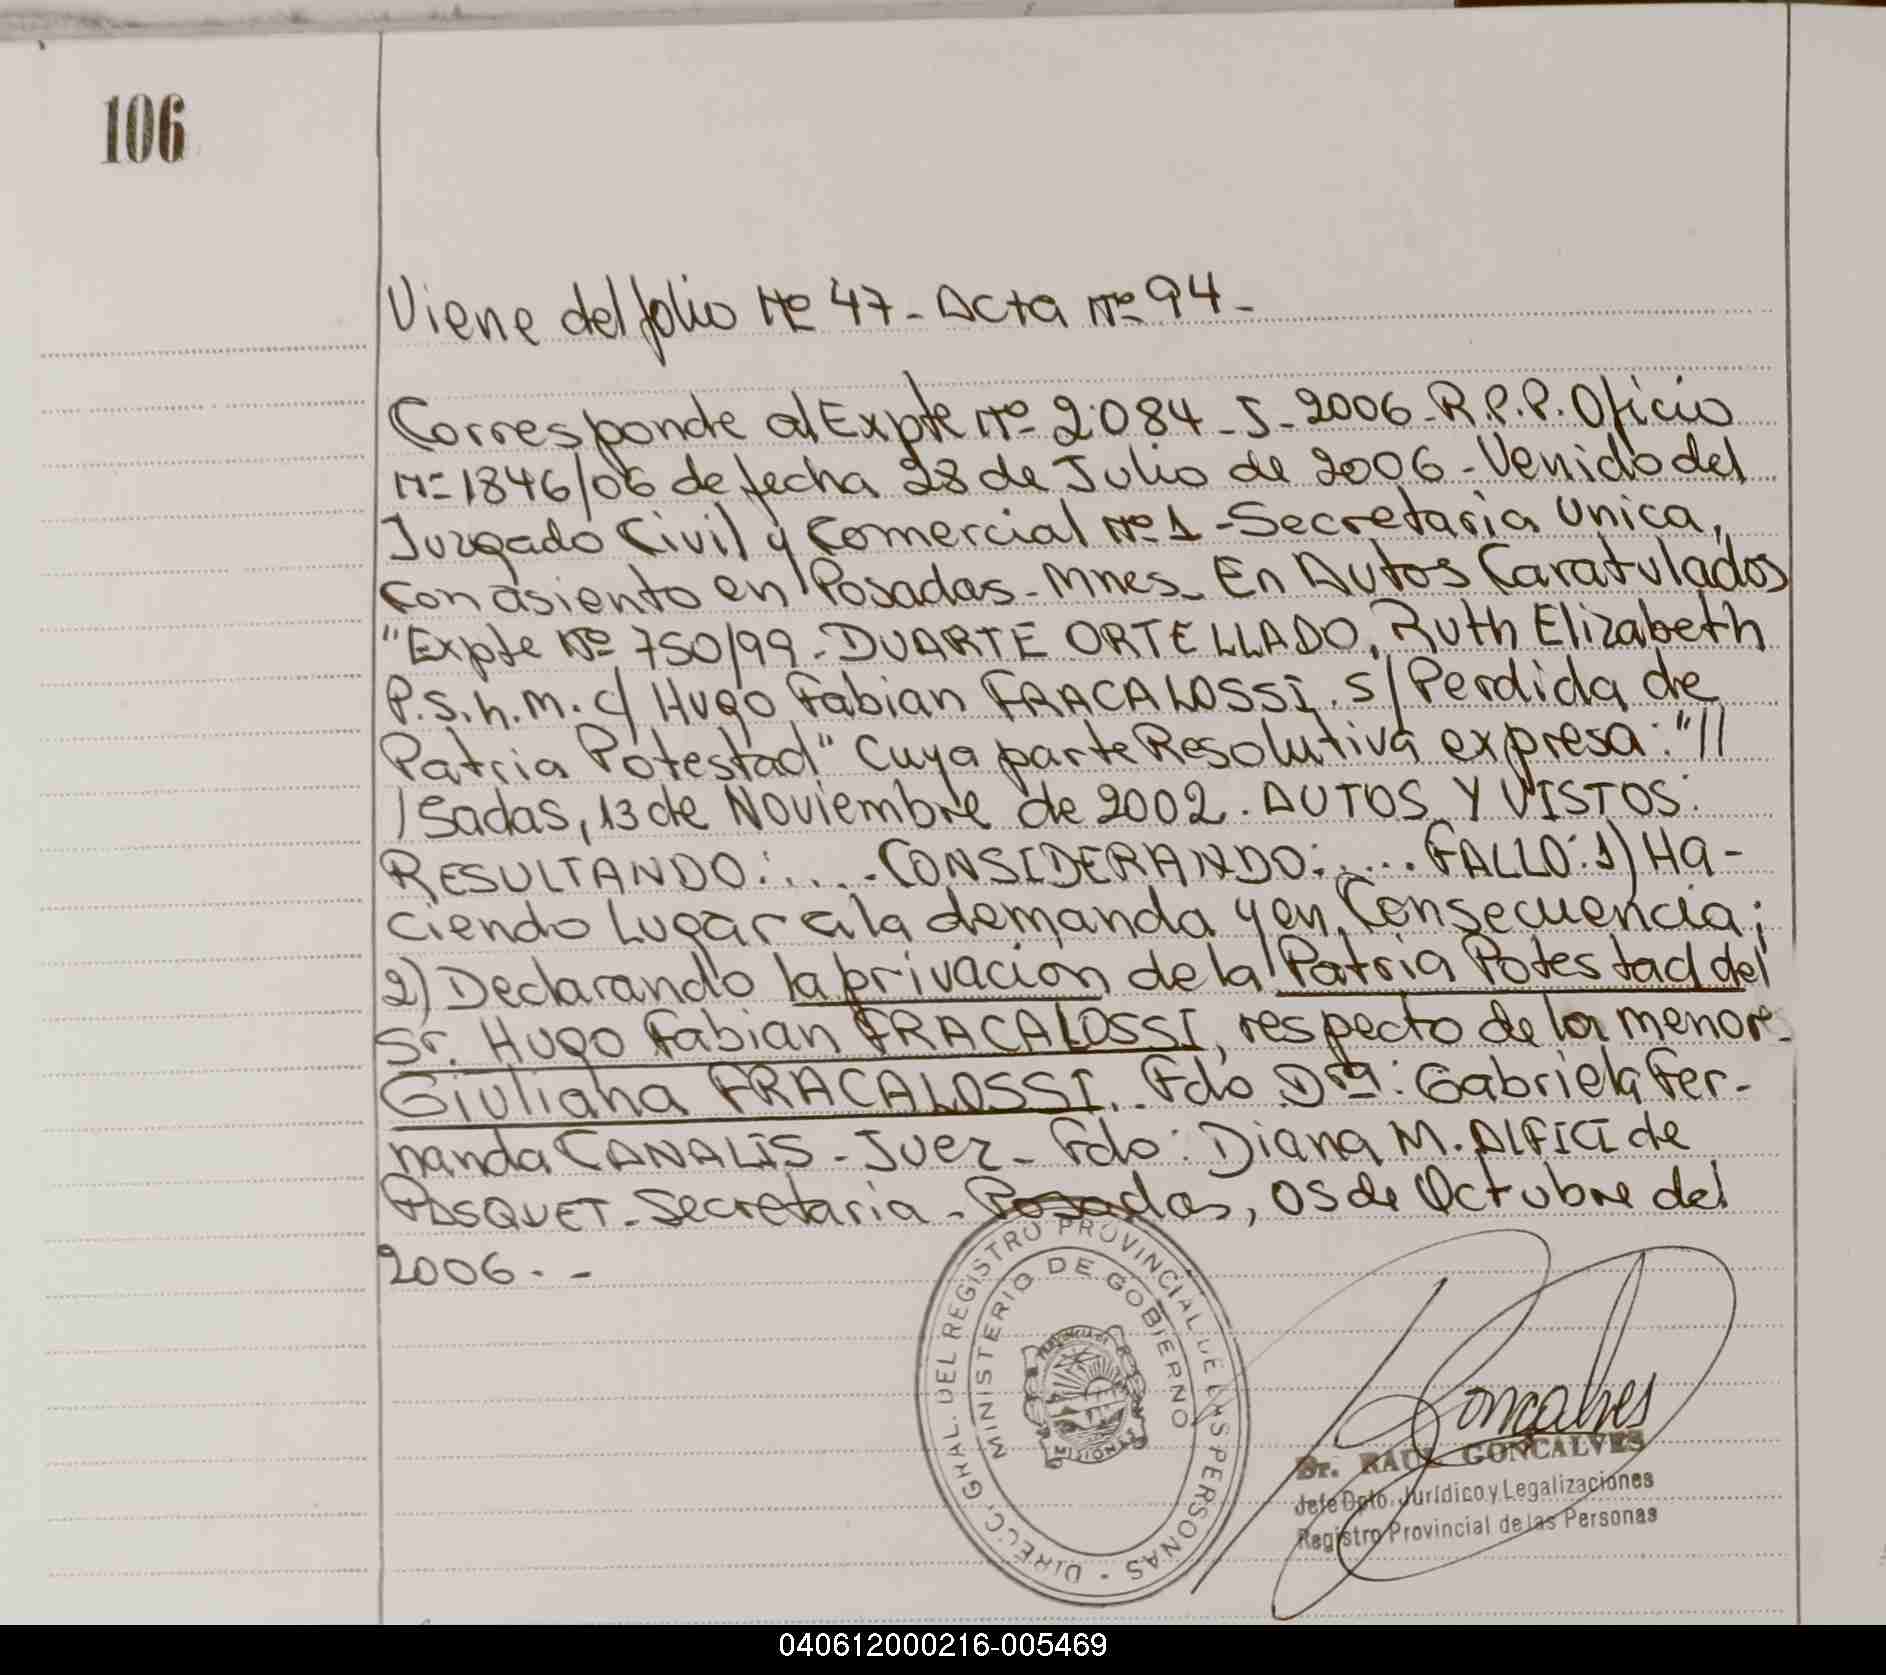 106
Viene del folio Nº 47 - Acta Nº 94 -
Corresponde al Expte Nº 2.084 - J - 2006 - R.P.P. Oficio
Nº 1846/06 de fecha 28 de Julio de 2006 - Venido del
Juzgado Civil y Comercial Nº 1 - Secretaria Unica,
con asiento en Posadas - Mnes - En Autos Caratulados
"Expte Nº 750/99 - DUARTE ORTELLADO, Ruth Elizabeth
P.S.h.m. c/ Hugo Fabian FRACALOSSI. s/ Perdida de
Patria Potestad" Cuya parte Resolutiva expresa: "//
/sadas, 13 de Noviembre de 2002. AUTOS Y VISTOS:
RESULTANDO: .... CONSIDERANDO: .... FALLO: 1) Ha-
ciendo Lugar a la demanda y en Consecuencia;
2) Declarando la privacion de la Patria Potestad del
Sr. Hugo Fabian FRACALOSSI, respecto de la menor
Giuliana FRACALOSSI. Fdo Dra: Gabriela Fer-
nanda CANALIS - Juez - Fdo: Diana M. ALFICI de
PASQUET - Secretaria - Posadas, 05 de Octubre del
2006 - -
DIRECC. GRAL. DEL REGISTRO PROVINCIAL DE LAS PERSONAS -
MINISTERIO DE GOBIERNO
PROVINCIA DE
MISIONES
Goncalves
Dr. RAUL GONCALVES
Jefe Dpto. Jurídico y Legalizaciones
Registro Provincial de las Personas
040612000216-005469